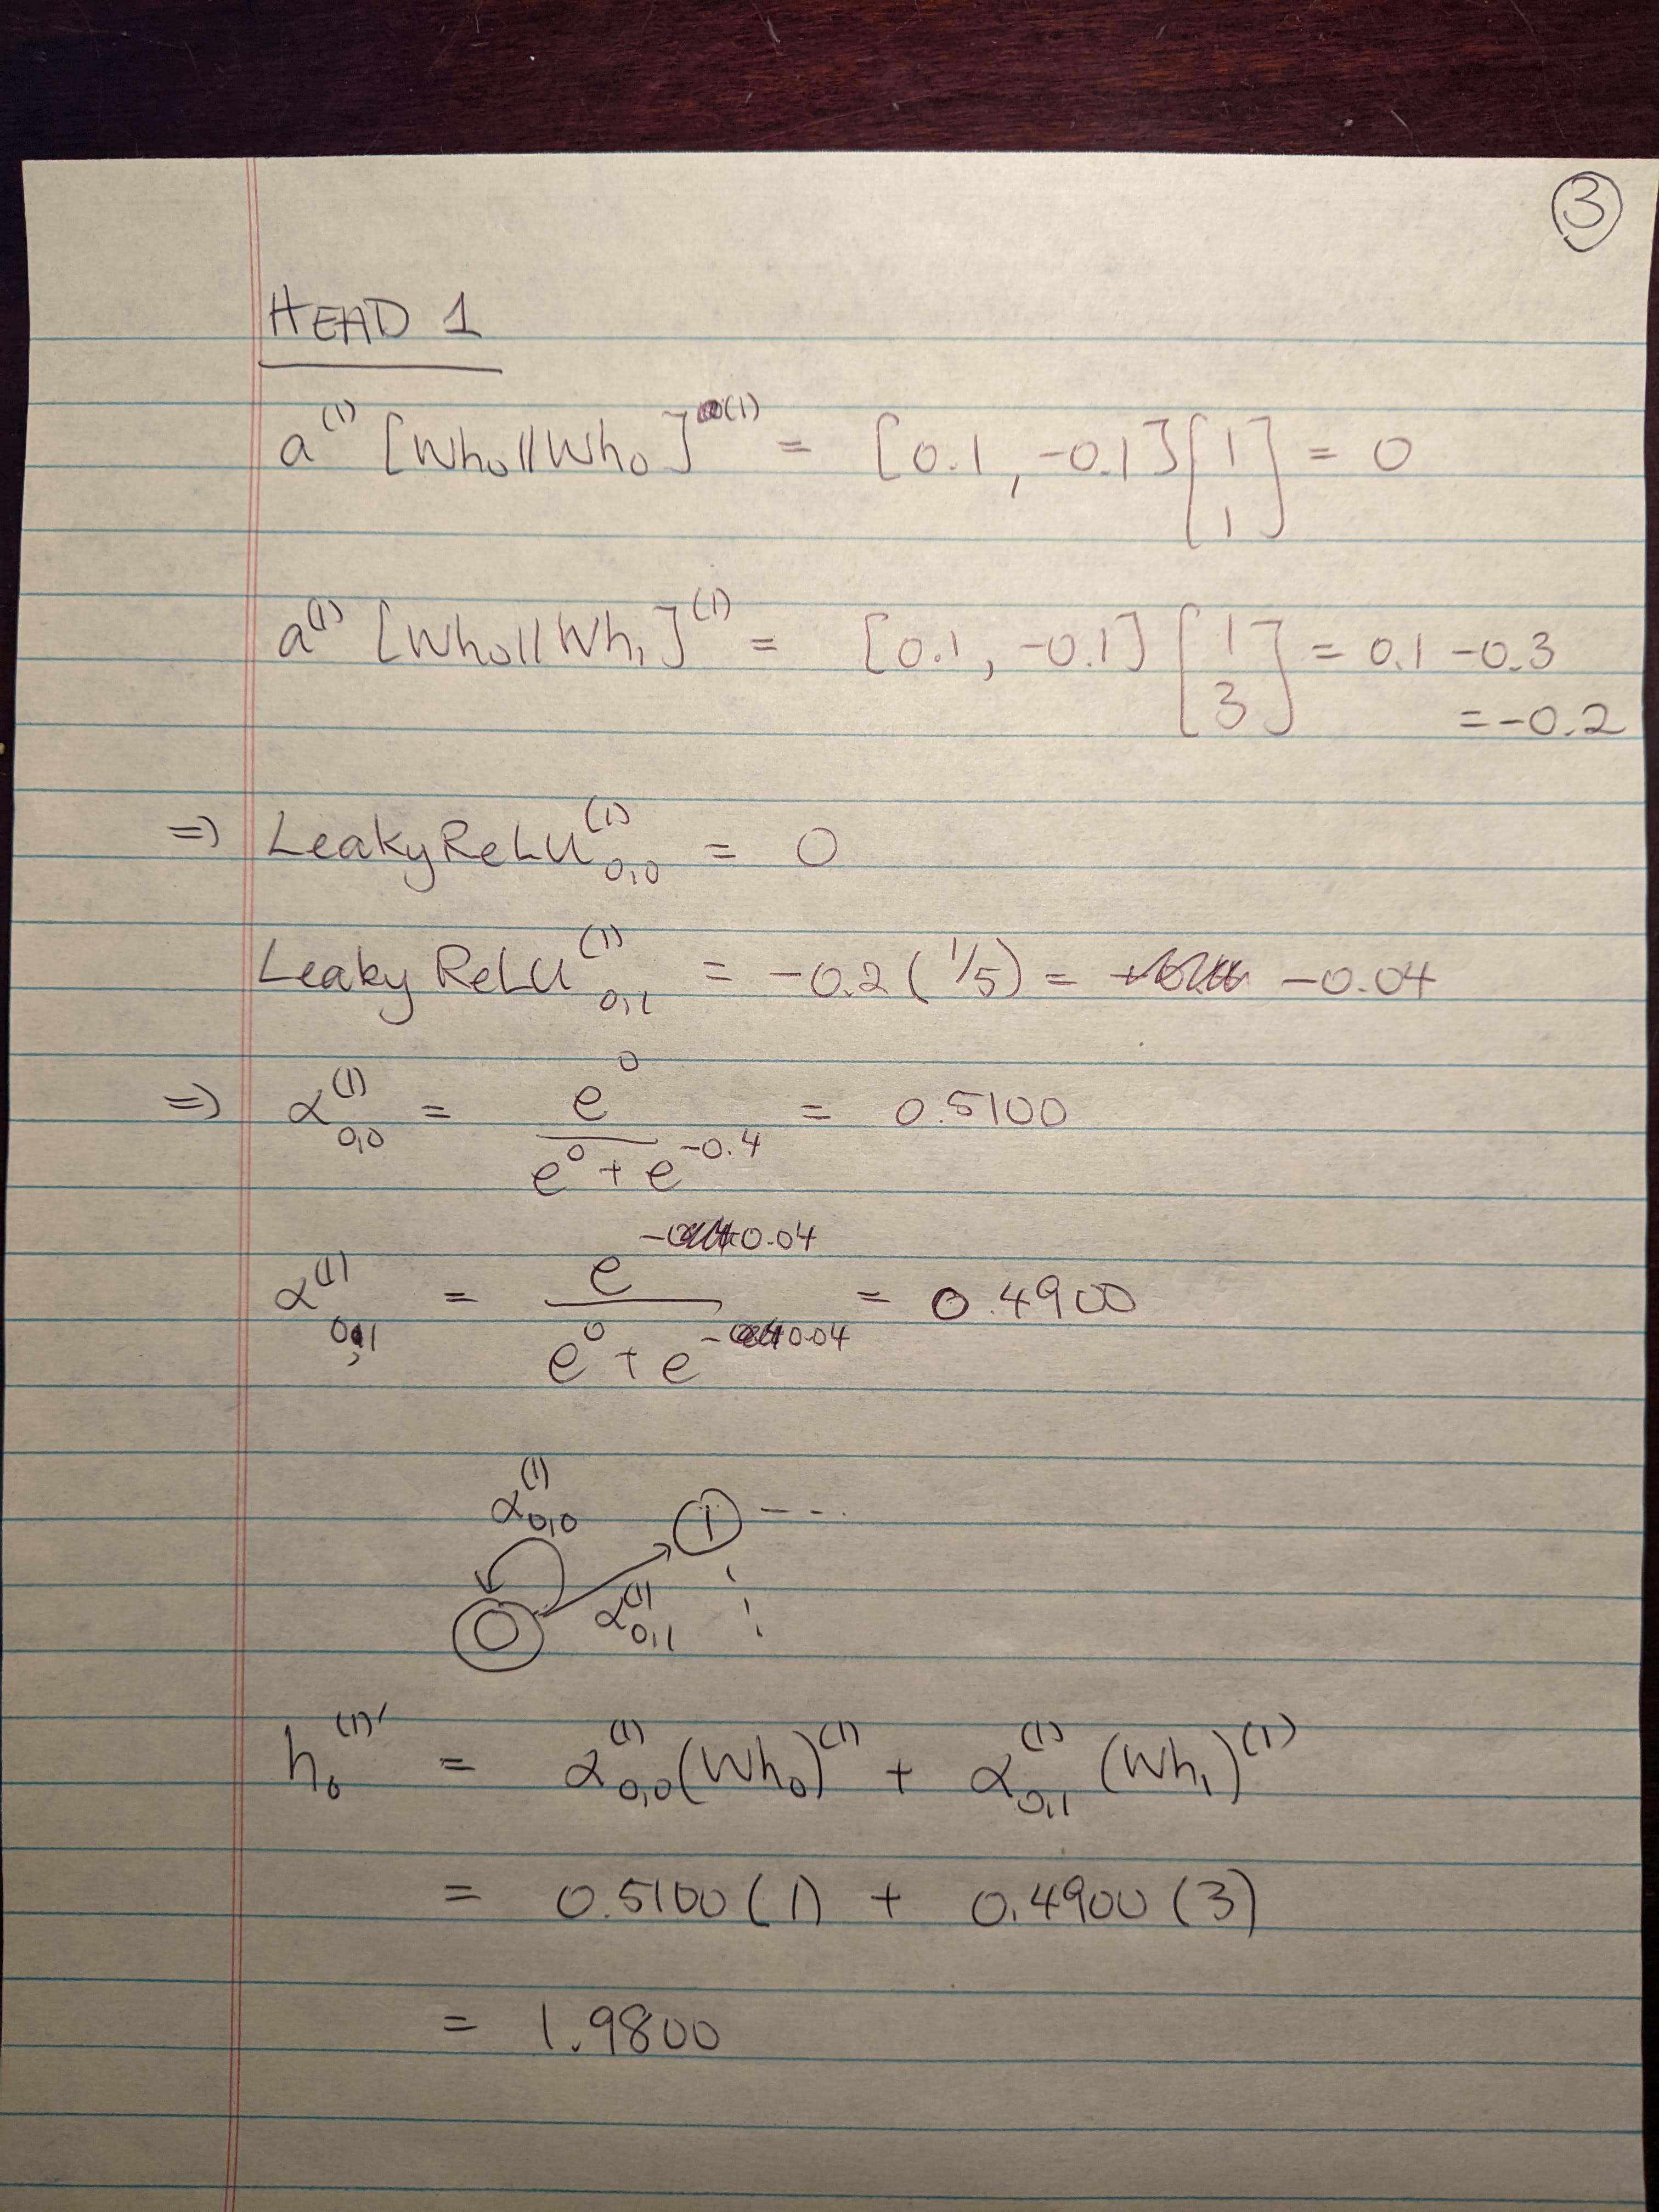 ③
HEAD 1
a⁽¹⁾ [Wh₀||Wh₀]⁽¹⁾ = [0.1, -0.1] [1 1] = 0
a⁽¹⁾ [Wh₀||Wh₁]⁽¹⁾ = [0.1, -0.1] [1 3] = 0.1 - 0.3
= -0.2
⇒ LeakyReLU⁽¹⁾₀,₀ = 0
LeakyReLU⁽¹⁾₀,₁ = -0.2 (1/5) = -0.04
⇒ α⁽¹⁾₀,₀ = e⁰ / (e⁰ + e^-0.4) = 0.5100
α⁽¹⁾₀,₁ = e^-0.04 / (e⁰ + e^-0.04) = 0.4900
α⁽¹⁾₀,₀
1 ---
0
α⁽¹⁾₀,₁
h₀⁽¹⁾′ = α⁽¹⁾₀,₀ (Wh₀)⁽¹⁾ + α⁽¹⁾₀,₁ (Wh₁)⁽¹⁾
= 0.5100 (1) + 0.4900 (3)
= 1.9800